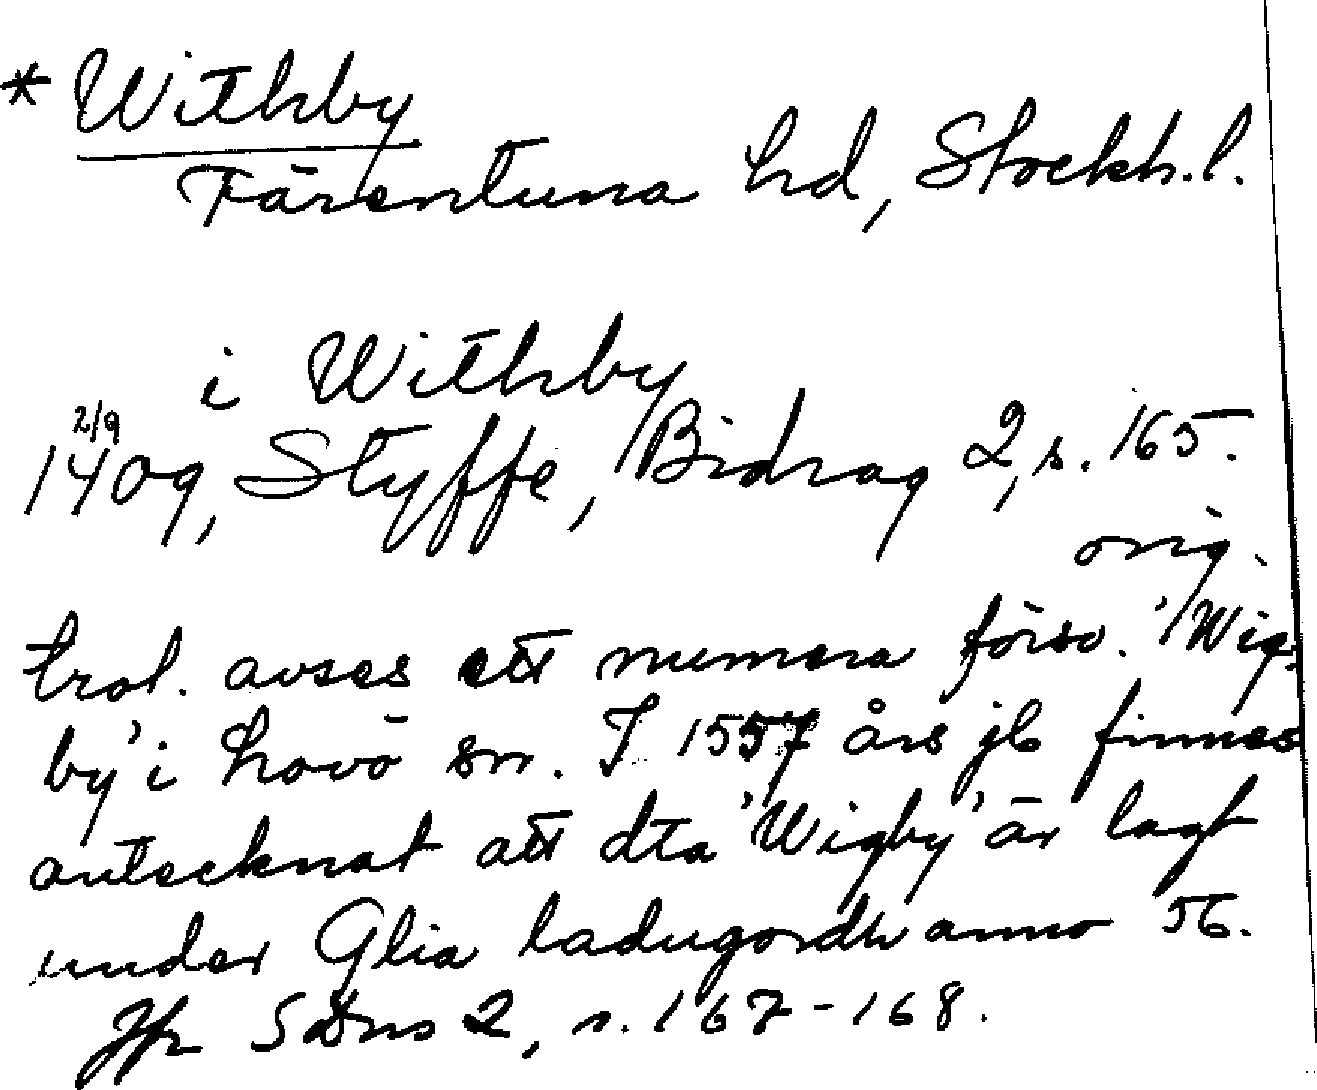 * Withby
Färentuna hd, Stockh.l.
i Withby
2/9
1409, Styffe, Bidrag 2, s. 165.
orig.
trol. avses ett numera försv. 'Wig-
by' i Lovö sn. I 1557 års jb finnes
antecknat att dta 'Wigby' är lagt
under Glia ladugordh anno 56.
Jfr SOns 2, s. 167-168.